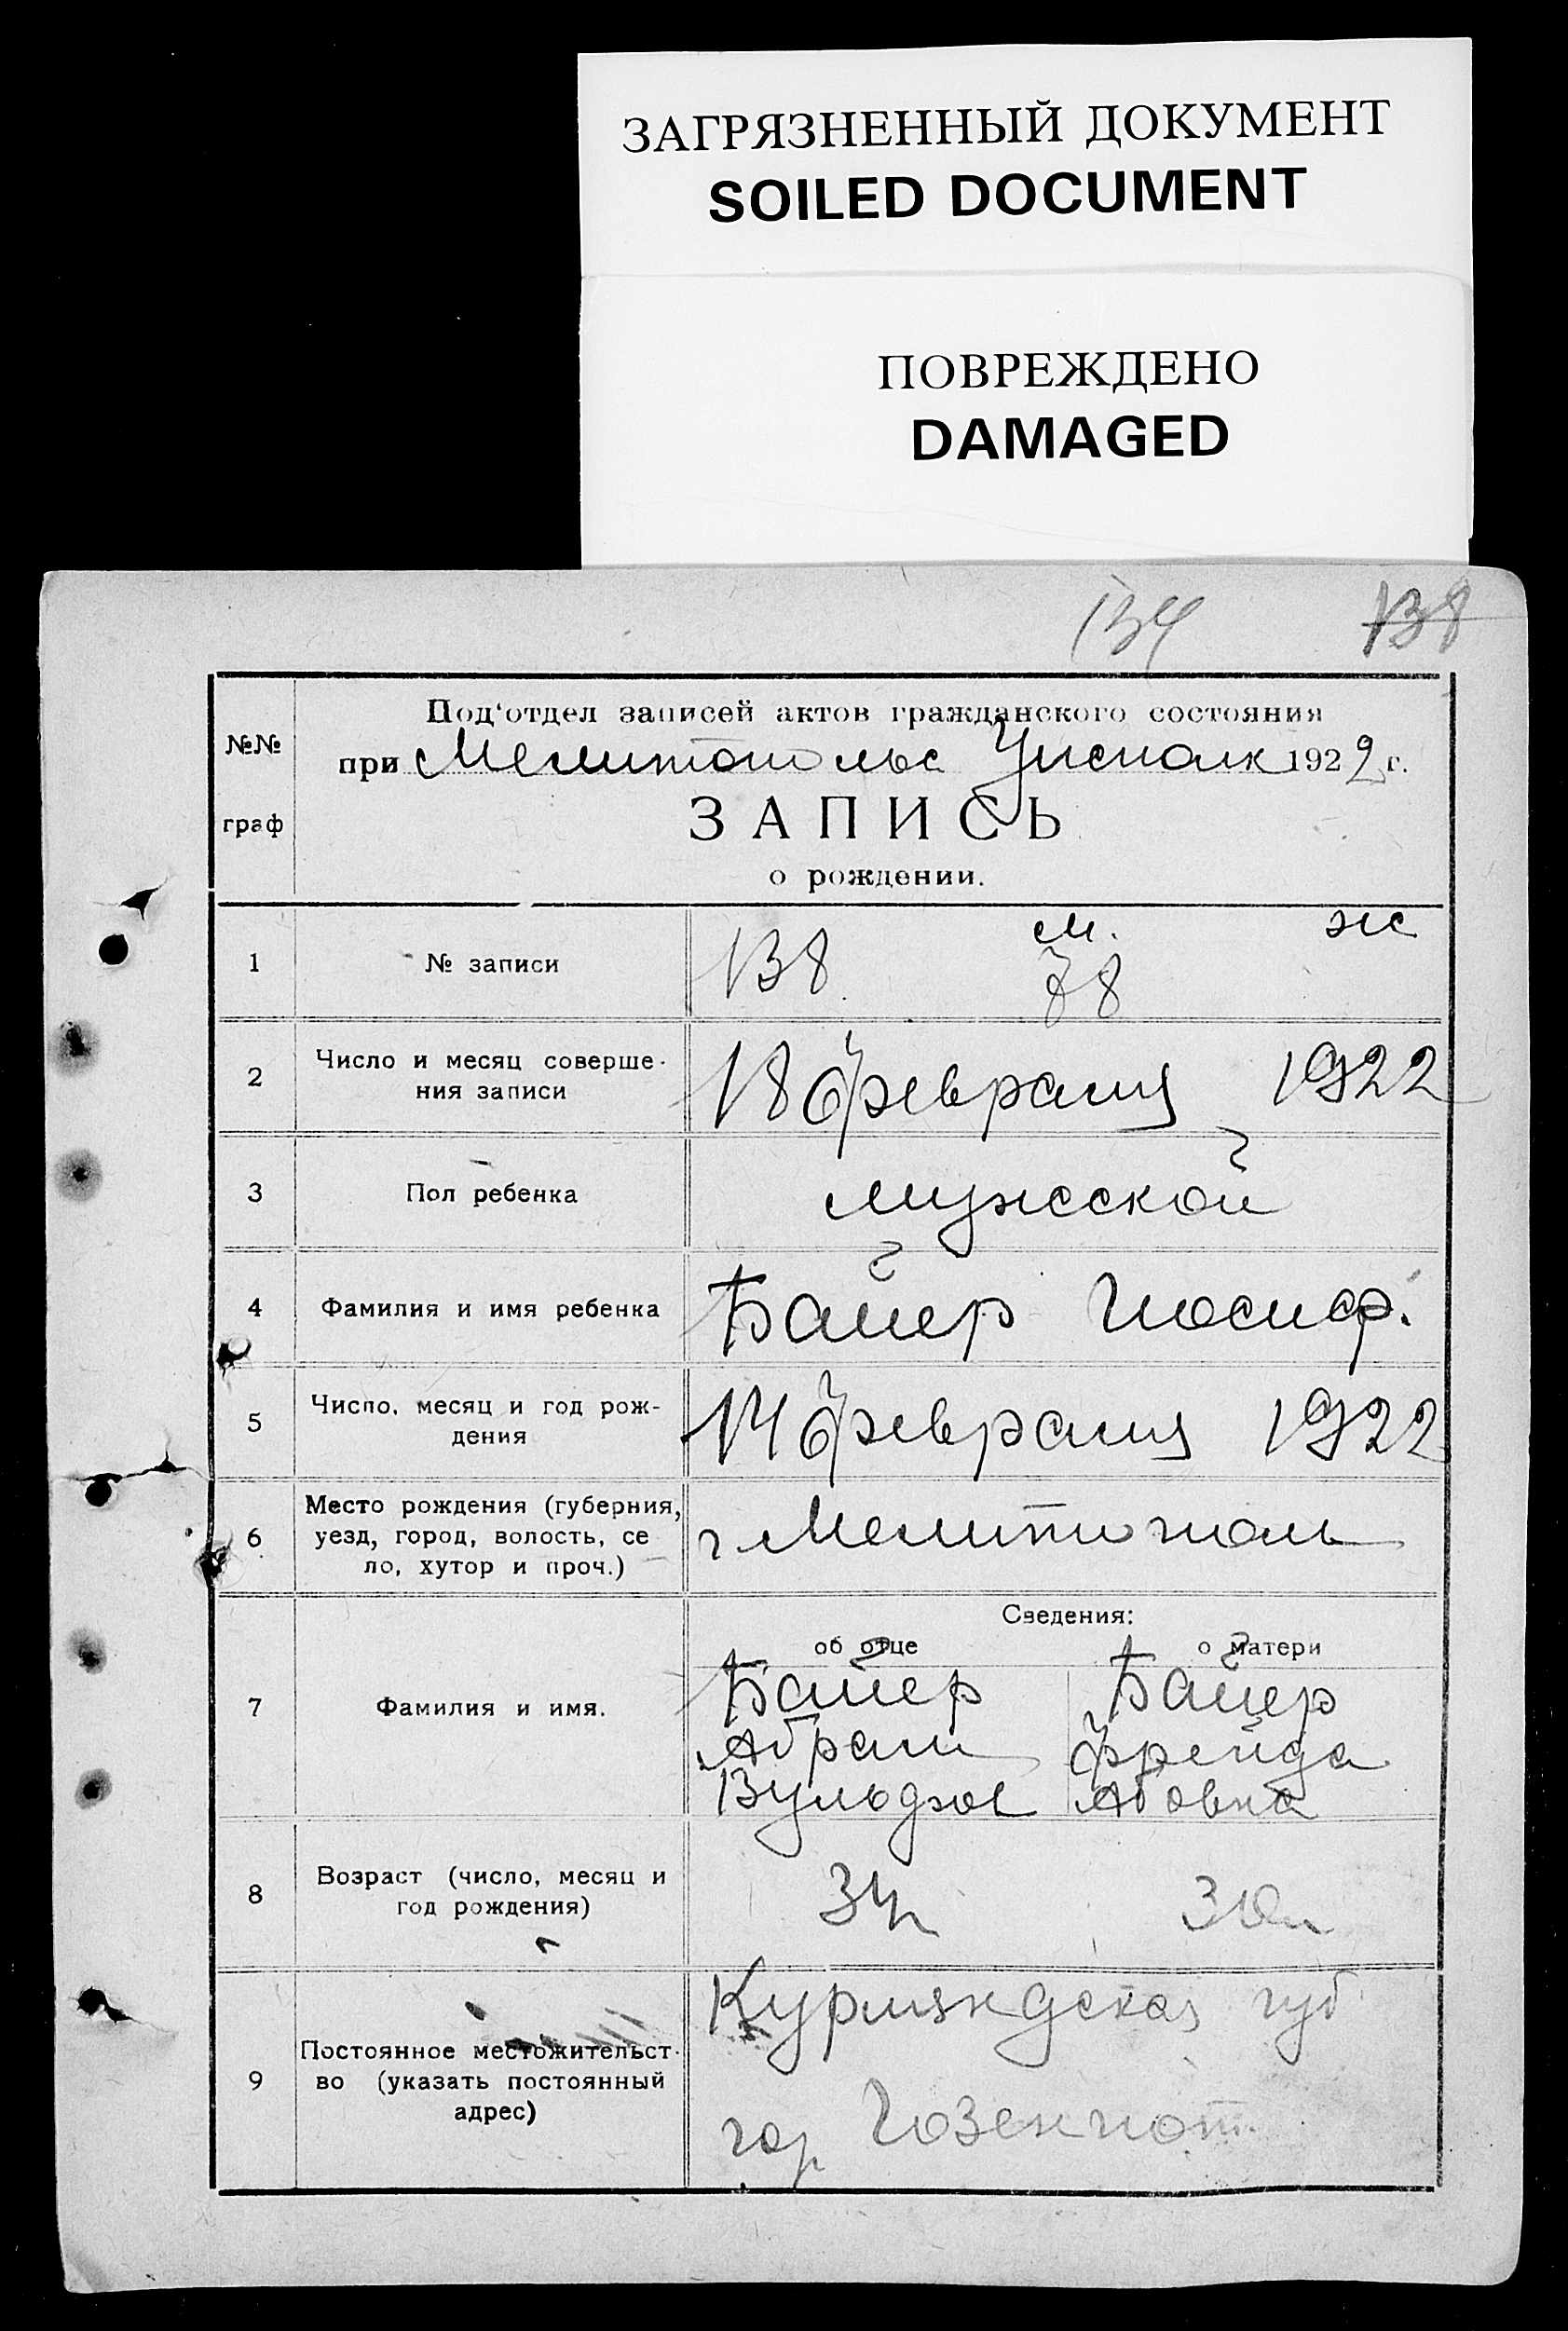 ЗАГРЯЗНЕННЫЙ ДОКУМЕНТ
SOILED DOCUMENT
ПОВРЕЖДЕНО
DAMAGED
134 138
№№ граф
Под‘отдел записей актов гражданского состояния
при Мелитопольс Уисполк 1922 г.
ЗАПИСЬ
о рождении.
м. ж
1 № записи 138 78
2 Число и месяц соверше-
ния записи 18 февраля 1922
3 Пол ребенка мужской
4 Фамилия и имя ребенка Байер Иосиф.
5 Число, месяц и год рож-
дения 14 февраля 1922
6 Место рождения (губерния,
уезд, город, волость, се
ло, хутор и проч.) г Мелитополь
Сведения:
об отце о матери
7 Фамилия и имя. Байер Байер
Абрам Фрейда
Вульфов Абовна
8 Возраст (число, месяц и
год рождения) 34л 30л
9 Постоянное местожительст-
во (указать постоянный
адрес)
Курляндская губ
гор Гозенпот